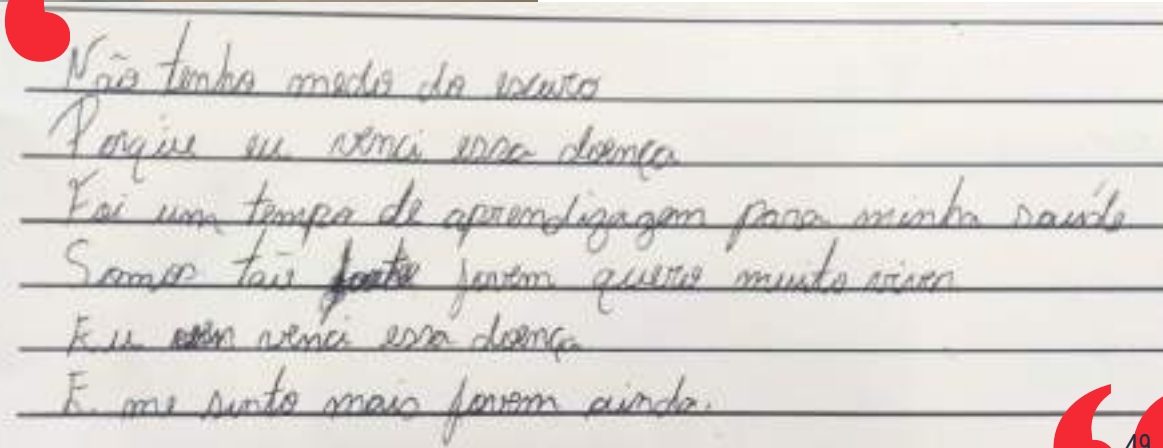 Não tenho medo do escuro
Porque eu venci essa doença
Foi um tempo de aprendizagem para minha saúde
Somos tão jovem quero muito viver
Eu venci essa doença
E me sinto mais jovem ainda.
49